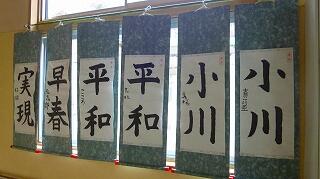 実現
早春
平和
平和
小川
小川